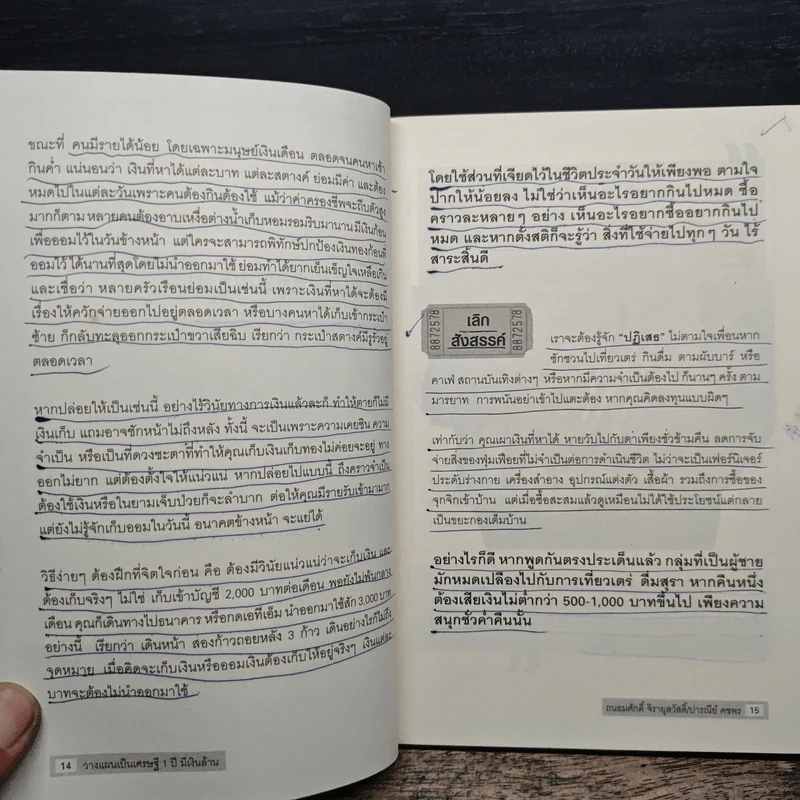 ขณะที่ คนมีรายได้น้อย โดยเฉพาะมนุษย์เงินเดือน ตลอดจนคนหาเช้า
กินค่ำ แน่นอนว่า เงินที่หาได้แต่ละบาท แต่ละสตางค์ ย่อมมีค่า และต้อง
หมดไปในแต่ละวันเพราะคนต้องกินต้องใช้ แม้ว่าค่าครองชีพจะถีบตัวสูง
มากก็ตาม หลายคนต้องอาบเหงื่อต่างน้ำเก็บหอมรอมริบมานาน มีเงินก้อน
เพื่อออมไว้ในวันข้างหน้า แต่ใครจะสามารถพิทักษ์ปกป้องเงินทองก้อนที่
ออมไว้ ได้นานที่สุดโดยไม่นำออกมาใช้ ย่อมทำได้ยากเย็นเข็ญใจเหลือเกิน
และเชื่อว่า หลายครัวเรือนย่อมเป็นเช่นนี้ เพราะเงินที่หาได้จะต้องมี
เรื่องให้ควักจ่ายออกไปอยู่ตลอดเวลา หรือบางคนหาได้เก็บเข้ากระเป๋า
ซ้าย ก็กลับทะลุออกกระเป๋าขวาเสียฉิบ เรียกว่า กระเป๋าสตางค์มีรูรั่วอยู่
ตลอดเวลา
หากปล่อยให้เป็นเช่นนี้ อย่างไร้วินัยทางการเงินแล้วละก็ ทำให้ตายก็ไม่มี
เงินเก็บ แถมอาจชักหน้าไม่ถึงหลัง ทั้งนี้ จะเป็นเพราะความเคยชิน ความ
จำเป็น หรือเป็นที่ดวงชะตาที่ทำให้คุณเก็บเงินเก็บทองไม่ค่อยจะอยู่ ทาง
ออกไม่ยาก แต่ต้องตั้งใจให้แน่วแน่ หากปล่อยไปแบบนี้ ถึงคราวจำเป็น
ต้องใช้เงินหรือในยามเจ็บป่วยก็จะลำบาก ต่อให้คุณมีรายรับเข้ามามาก
แต่ยังไม่รู้จักเก็บออมในวันนี้ อนาคตข้างหน้า จะแย่ได้
วิธีง่ายๆ ต้องฝึกที่จิตใจก่อน คือ ต้องมีวินัยแน่วแน่ว่าจะเก็บเงิน และ
ต้องเก็บจริงๆ ไม่ใช่ เก็บเข้าบัญชี 2,000 บาทต่อเดือน พอยังไม่พ้นกลาง
เดือน คุณก็เดินทางไปธนาคาร หรือกดเอทีเอ็ม นำออกมาใช้สัก 3,000 บาท
อย่างนี้ เรียกว่า เดินหน้า สองก้าวถอยหลัง 3 ก้าว เดินอย่างไรก็ไม่ถึง
จุดหมาย เมื่อคิดจะเก็บเงินหรือออมเงินต้องเก็บให้อยู่จริงๆ เงินแต่ละ
บาทจะต้องไม่นำออกมาใช้
14 วางแผนเป็นเศรษฐี 1 ปี มีเงินล้าน
โดยใช้ส่วนที่เจียดไว้ในชีวิตประจำวันให้เพียงพอ ตามใจ
ปากให้น้อยลง ไม่ใช่ว่าเห็นอะไรอยากกินไปหมด ซื้อ
คราวละหลายๆ อย่าง เห็นอะไรอยากซื้ออยากกินไป
หมด และหากตั้งสติก็จะรู้ว่า สิ่งที่ใช้จ่ายไปทุกๆ วัน ไร้
สาระสิ้นดี
8872578
เลิก
สังสรรค์
8872578
เราจะต้องรู้จัก “ปฏิเสธ” ไม่ตามใจเพื่อนหาก
ชักชวนไปเที่ยวเตร่ กินดื่ม ตามผับบาร์ หรือ
คาเฟ่ สถานบันเทิงต่างๆ หรือหากมีความจำเป็นต้องไป ก็นานๆ ครั้ง ตาม
มารยาท การพนันอย่าเข้าไปแตะต้อง หากคุณคิดลงทุนแบบผิดๆ
เท่ากับว่า คุณเผาเงินที่หาได้ หายวับไปกับตาเพียงชั่วข้ามคืน ลดการจับ
จ่ายสิ่งของฟุ่มเฟือยที่ไม่จำเป็นต่อการดำเนินชีวิต ไม่ว่าจะเป็นเฟอร์นิเจอร์
ประดับร่างกาย เครื่องสำอาง อุปกรณ์แต่งตัว เสื้อผ้า รวมถึงการซื้อของ
จุกจิกเข้าบ้าน แต่เมื่อซื้อสะสมแล้วดูเหมือนไม่ได้ใช้ประโยชน์แต่กลาย
เป็นขยะกองเต็มบ้าน
อย่างไรก็ดี หากพูดกันตรงประเด็นแล้ว กลุ่มที่เป็นผู้ชาย
มักหมดเปลืองไปกับการเที่ยวเตร่ ดื่มสุรา หากคืนหนึ่ง
ต้องเสียเงินไม่ต่ำกว่า 500-1,000 บาทขึ้นไป เพียงความ
สนุกชั่วค่ำคืนนั้น
ถนอมศักดิ์ จิรายุสวัสดิ์/ปารณีย์ คชพร 15